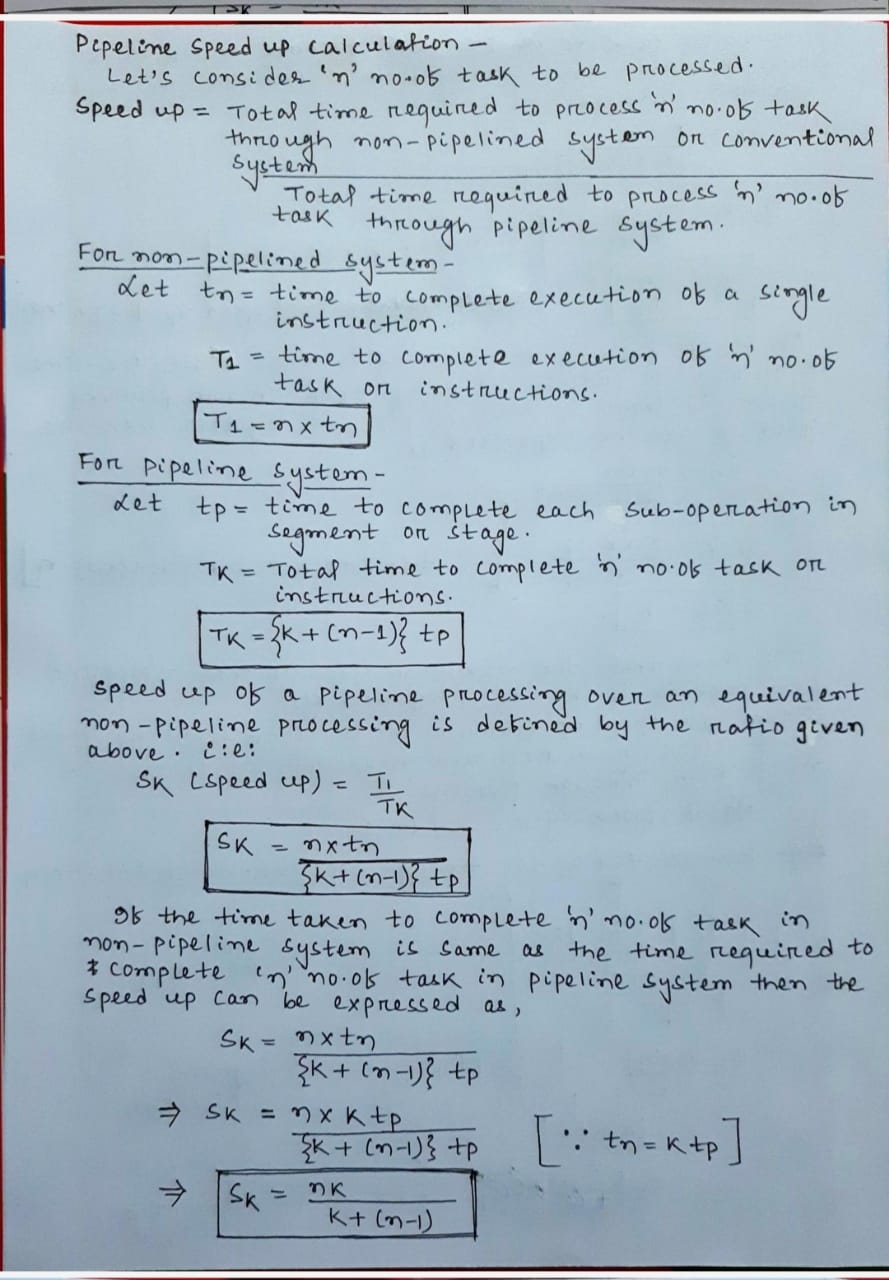 Pipeline speed up calculation –
Let's consider 'n' no. of task to be processed.
Speed up = Total time required to process 'n' no. of task
through non-pipelined system or conventional
system
Total time required to process 'n' no. of
task through pipeline system.
For non-pipelined system –
Let tn = time to complete execution of a single
instruction.
T1 = time to complete execution of 'n' no. of
task or instructions.
T1 = n x tn
For pipeline system –
Let tp = time to complete each sub-operation in
segment or stage.
TK = Total time to complete 'n' no. of task or
instructions.
TK = {K + (n-1)} tp
Speed up of a pipeline processing over an equivalent
non-pipeline processing is defined by the ratio given
above. i:e:
SK (speed up) = T1
TK
SK = n x tn
{K + (n-1)} tp
If the time taken to complete 'n' no. of task in
non-pipeline system is same as the time required to
complete 'n' no. of task in pipeline system then the
speed up can be expressed as,
SK = n x tn
{K + (n-1)} tp
⇒ SK = n x K tp
{K + (n-1)} tp [∵ tn = K tp]
⇒ SK = nK
K + (n-1)